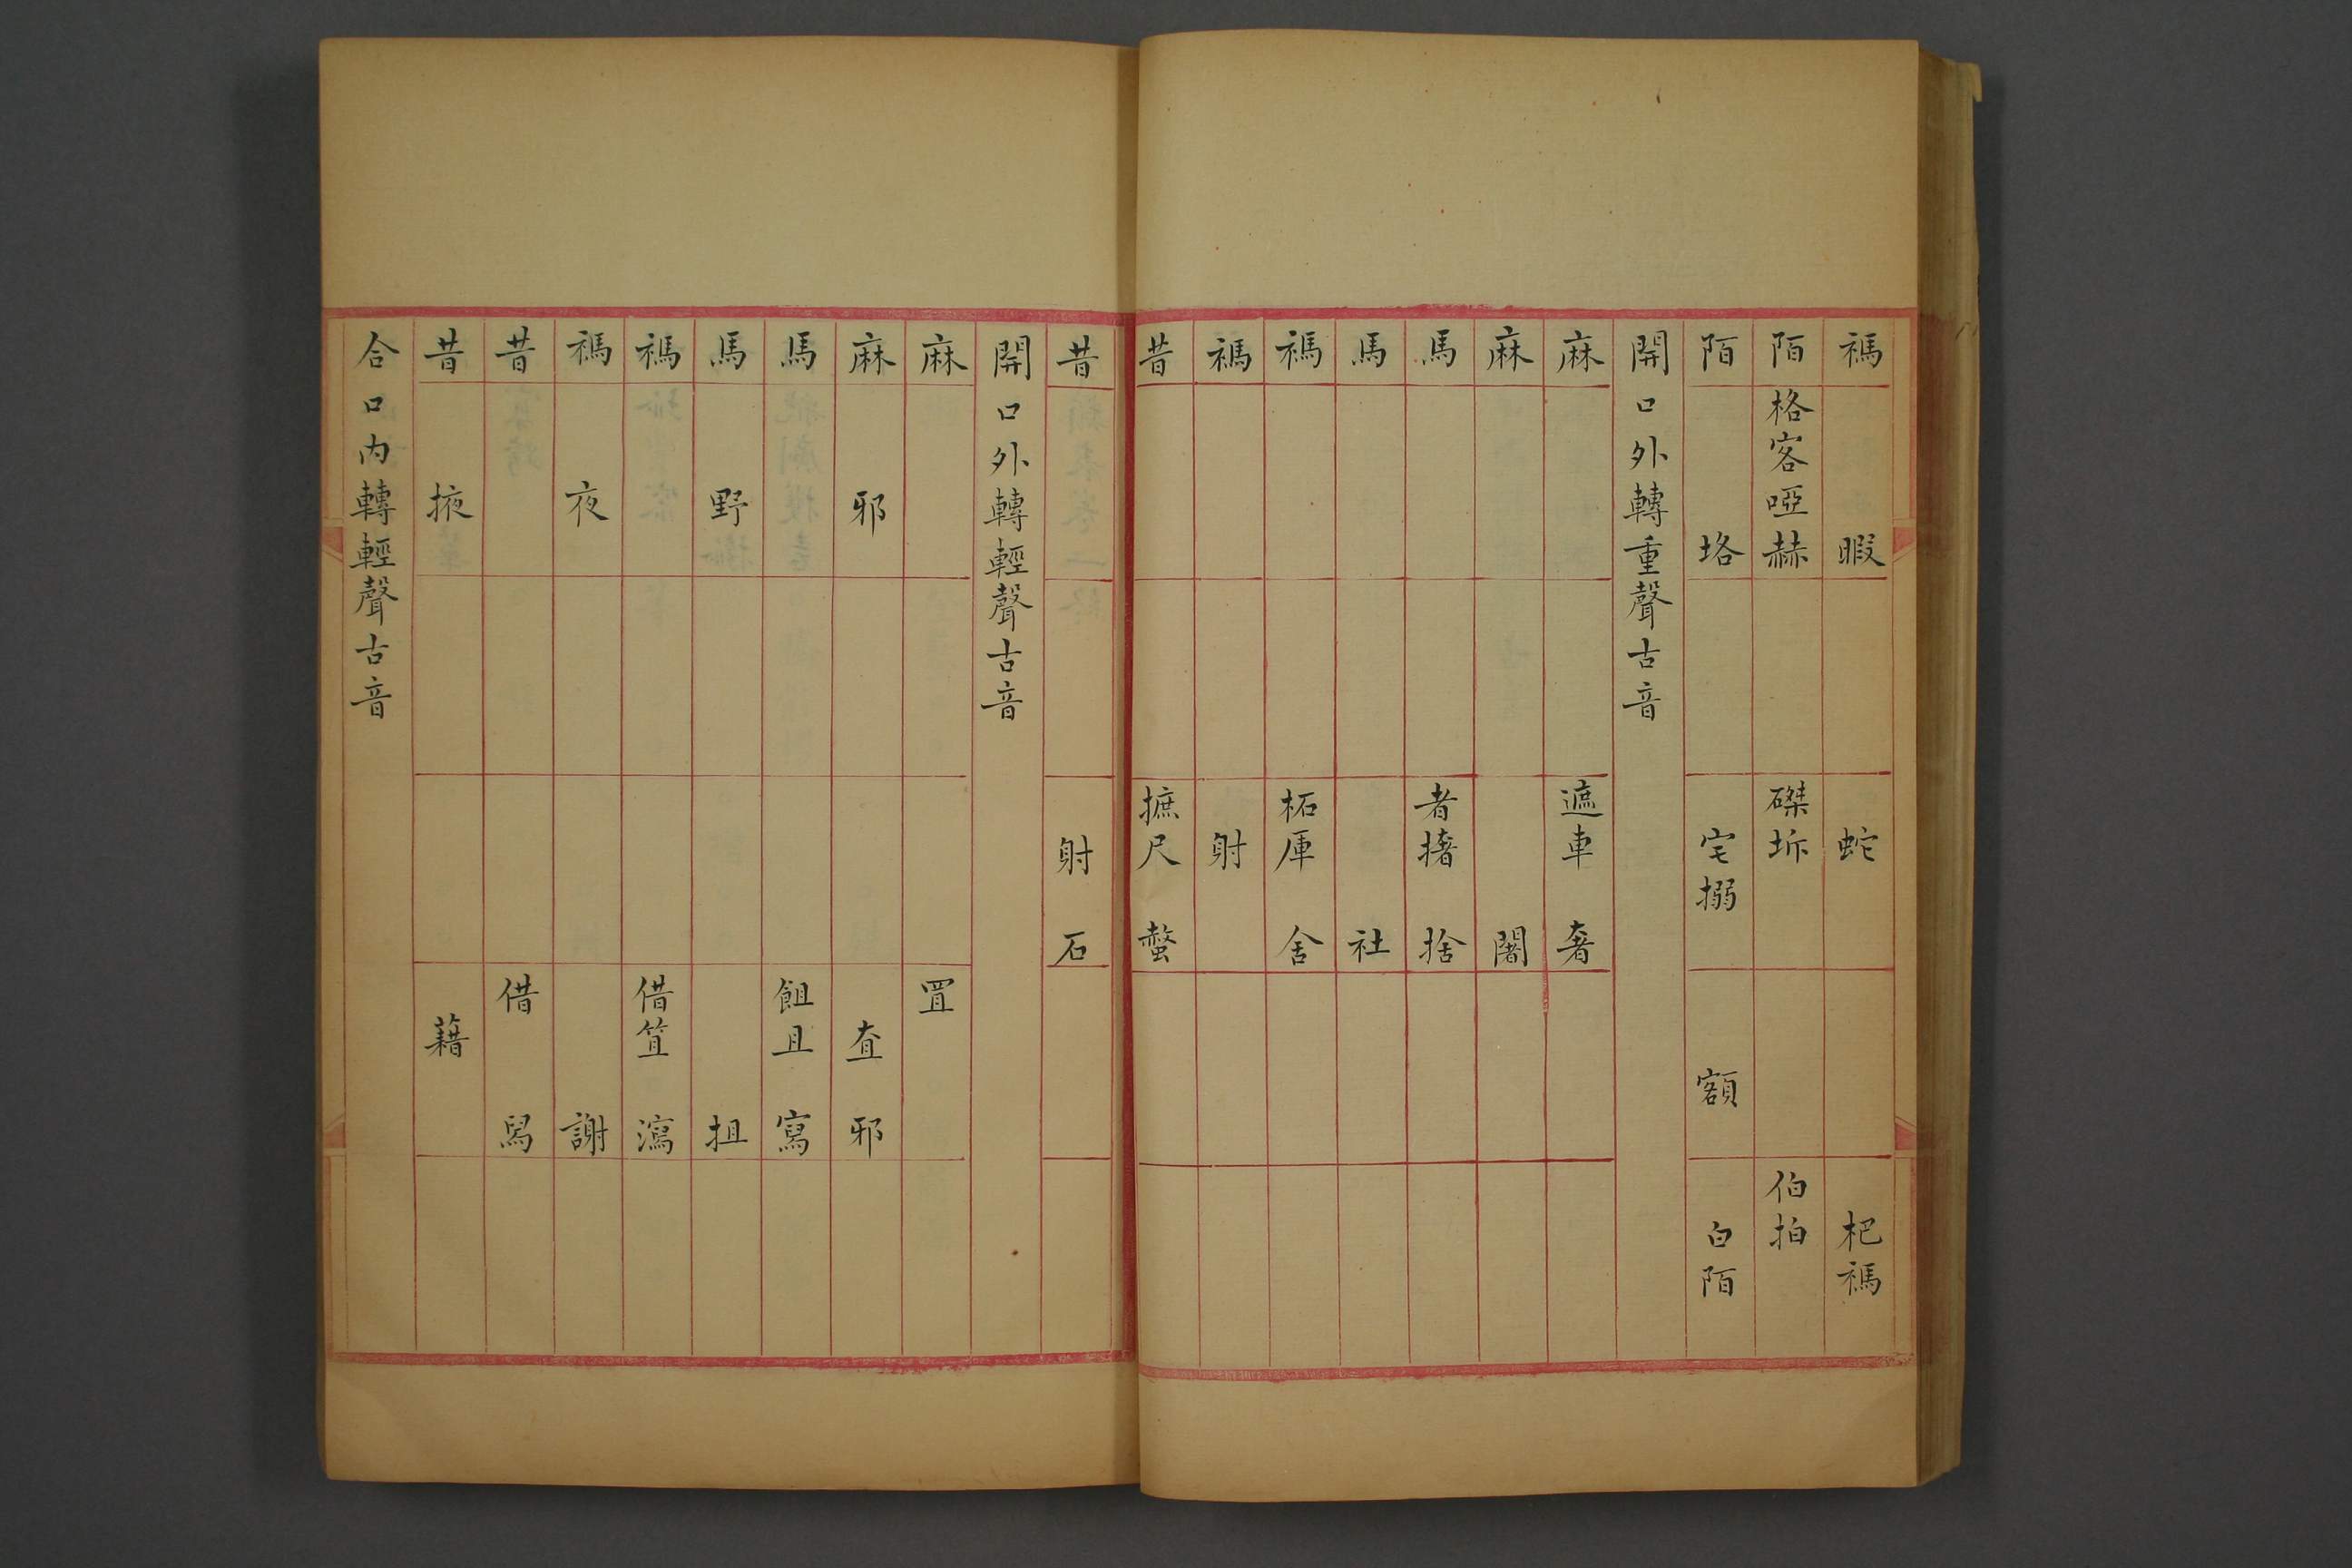 禡 暇 蛇 杷禡
陌 格客啞赫 磔坼 伯拍
陌 垎 宅搦 額 白陌
開口外轉重聲古音
麻 遮車奢
麻 闍
馬 者撦捨
馬 社
禡 柘厙舍
禡 射
昔 摭尺螫
昔 射石
開口外轉輕聲古音
麻 罝
麻 邪 査邪
馬 飷且寫
馬 野 抯
禡 借笡瀉
禡 夜 謝
昔 借舄
昔 掖 藉
合口內轉輕聲古音